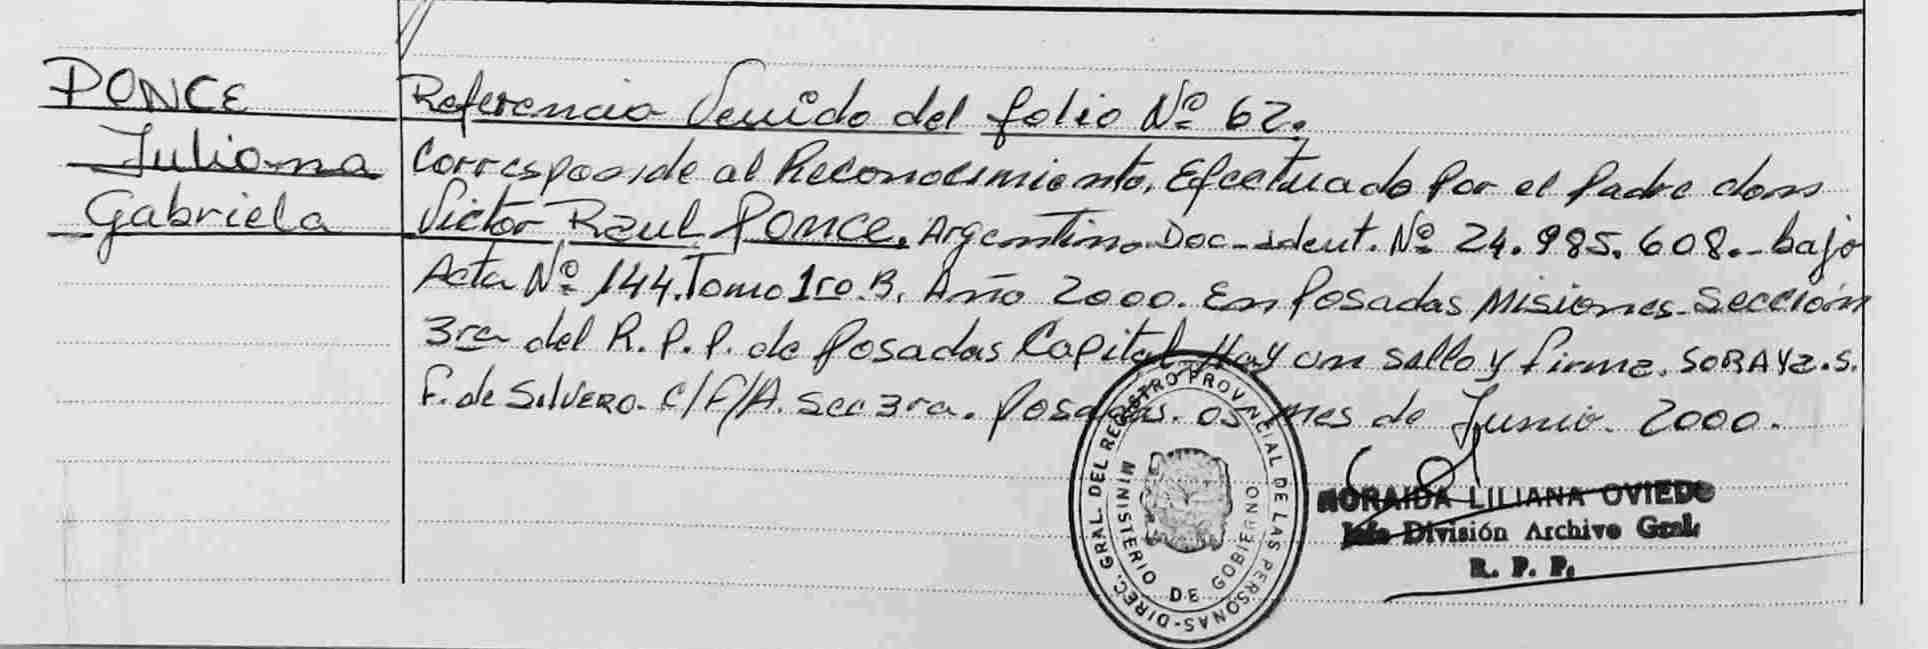 PONCE
Juliana
Gabriela
Referencia Venido del folio Nº 62.
Corresponde al Reconocimiento, Efectuado Por el Padre dons
Victor Raul PONCE. Argentino Doc-ident. Nº 24.985.608.-bajo
Acta Nº 144. Tomo 1ro.B. Año 2000. En Posadas Misiones-Sección
3ra del R.P.P. de Posadas Capital. Hay un sello y firma. SORAYa.S.
F. de SilVERO. C/F/A. Sec 3ra. Posadas. 05 mes de Junio. 2000.
DIREC. GRAL. DEL REGISTRO PROVINCIAL DE LAS PERSONAS-
MINISTERIO DE GOBIERNO
NORAIDA LILIANA OVIEDO
Jefe División Archivo Gral.
R. P. P.